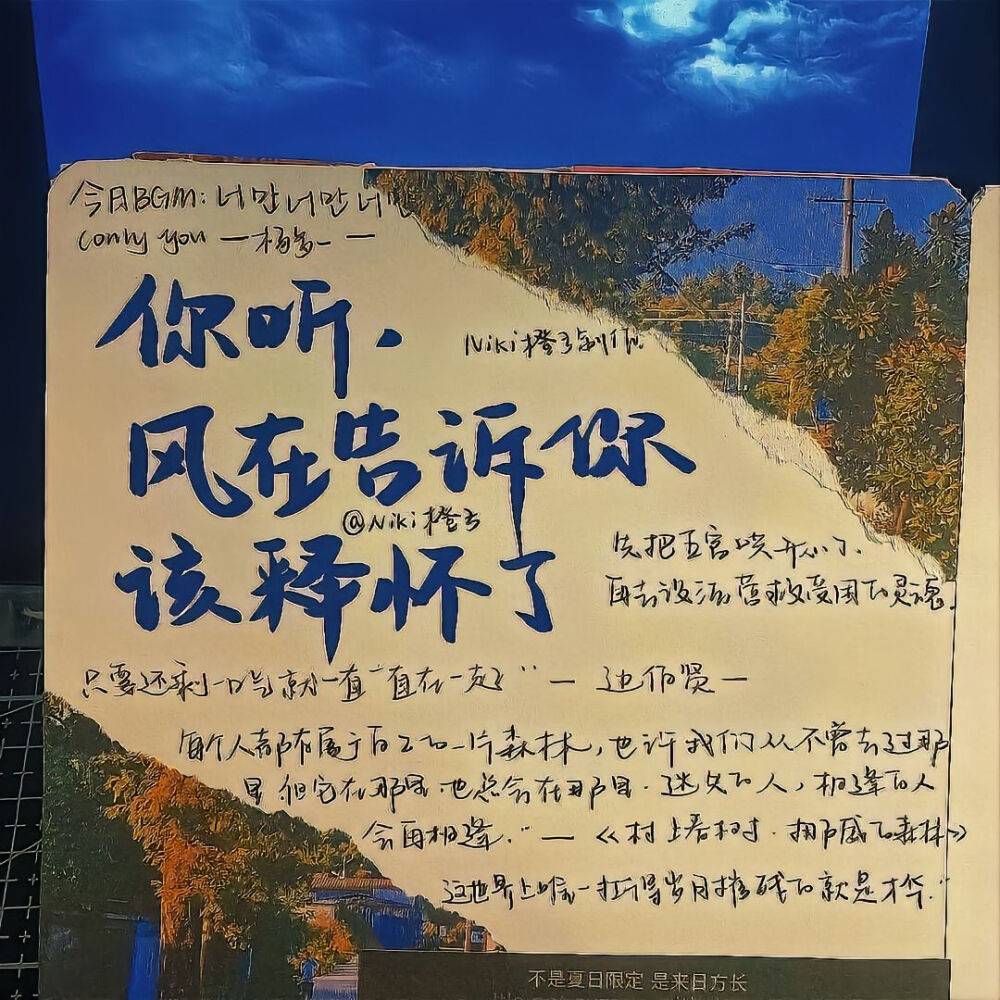 今日BGM: 너만 너만 너만
(only you —杨多一 —
你听，
Niki橙子制作
风在告诉你
@Niki橙子
该释怀了
先把五官哄开心了.
再去设法营救受困的灵魂.
只要还剩一口气就一直一直在一起" — 边伯贤 —
每个人都有属于自己的一片森林，也许我们从不曾去过那
里 但它在那里 也总会在那里. 迷失的人，相逢的人
会再相逢." — 《村上春树. 挪威的森林》
这世界上唯一扛得岁月摧残的就是才华."
不是夏日限定 是来日方长